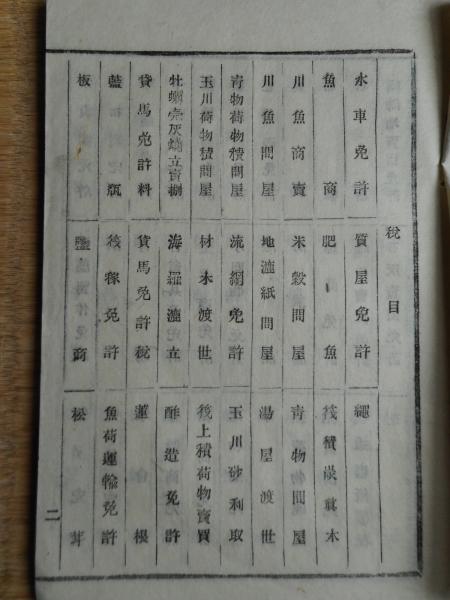 税目
水車免許 質屋免許 繩
魚商 肥
川魚商賣 米穀問屋 青物問屋
川魚問屋 地漉紙問屋 湯屋渡世
青物荷物積問屋 流網免許 玉川砂利取
玉川荷物積問屋 材木渡世 筏上積荷物賣買
海羅漉立 酢造免許
貸馬免許料 貸馬免許税 蓮根
藍瓶 筏稼免許 魚荷運輸免許
板 鹽商 松茸
二